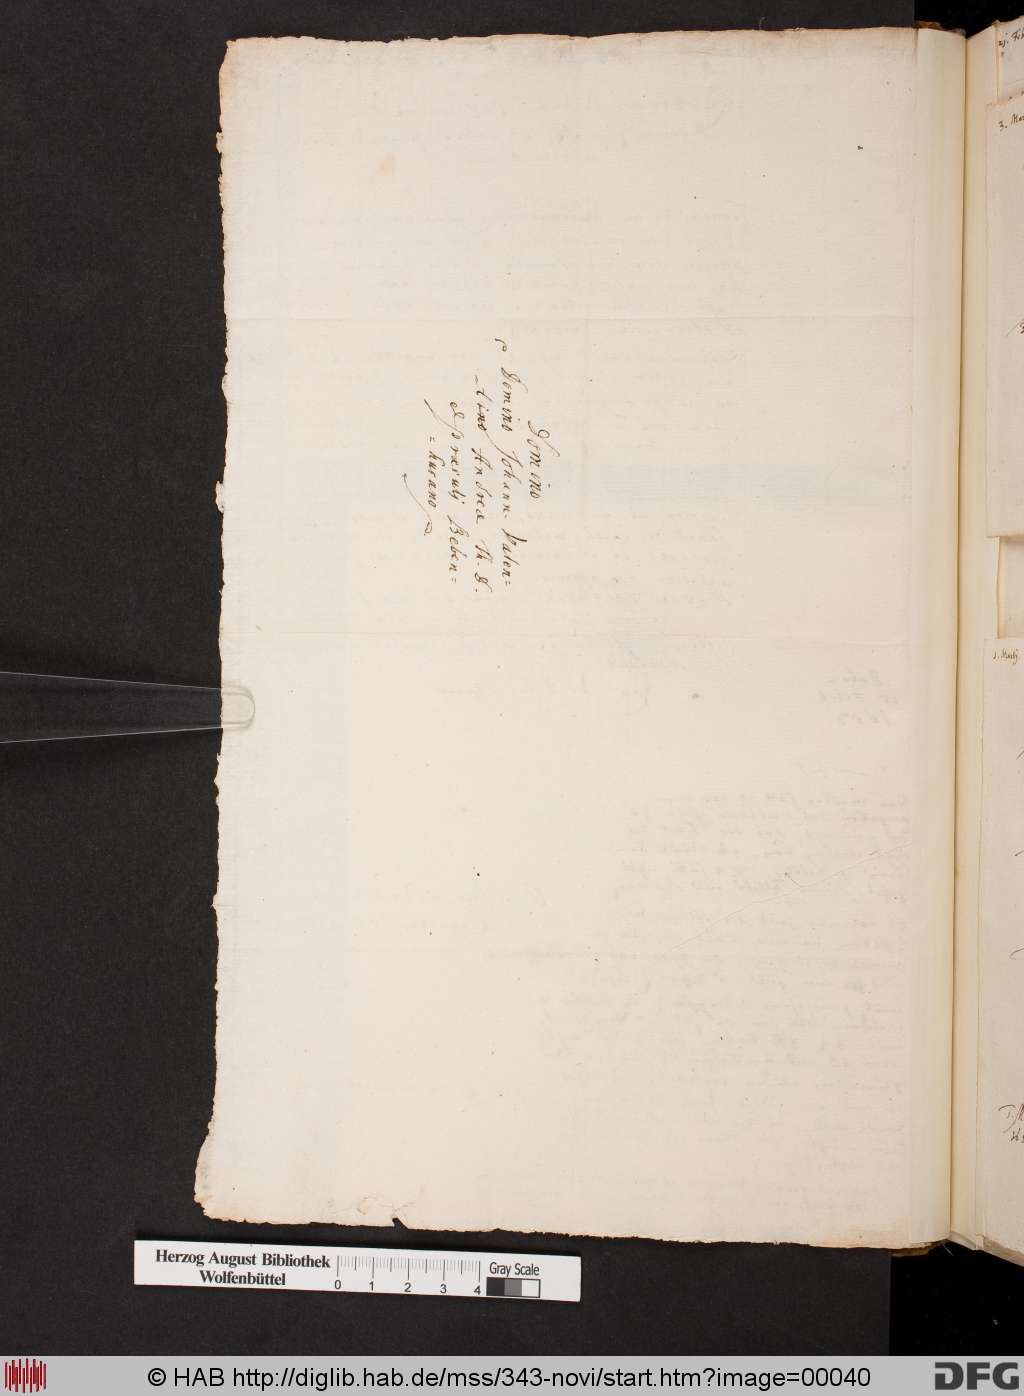 Domino
Domino Johann. Valen=
tino Andreæ Th. D.
& præsuli Beben=
=husano
3. Mar
1. Martij
Herzog August Bibliothek
Wolfenbüttel
0 1 2 3 4
Gray Scale
© HAB http://diglib.hab.de/mss/343-novi/start.htm?image=00040
DFG